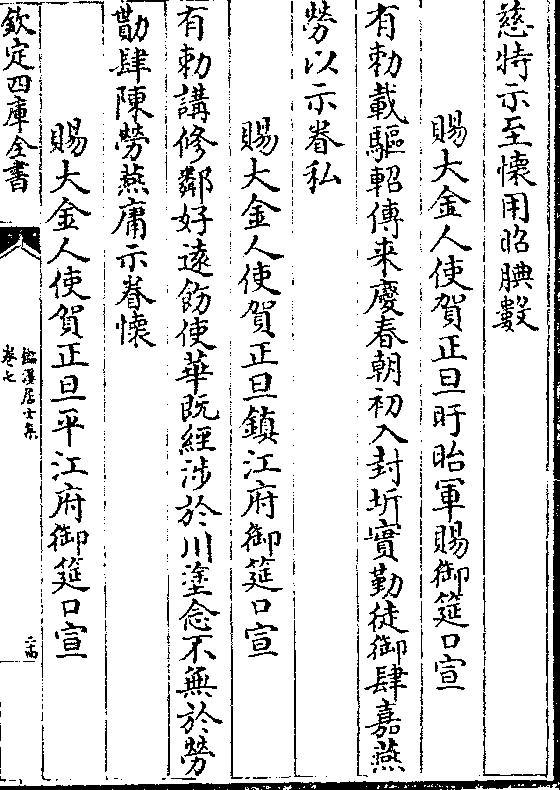 慈特示至懷用昭腆數
賜大金人使賀正旦盱眙軍賜御筵口宣
有勅載驅軺傳来慶春朝初入封圻實勤徒御肆嘉燕
勞以示眷私
賜大金人使賀正旦鎮江府御筵口宣
有勅講修鄰好逺飭使華既經涉於川塗念不無於勞
勚肆陳勞燕庸示眷懷
賜大金人使賀正旦平江府御筵口宣
欽定四庫全書
卷七